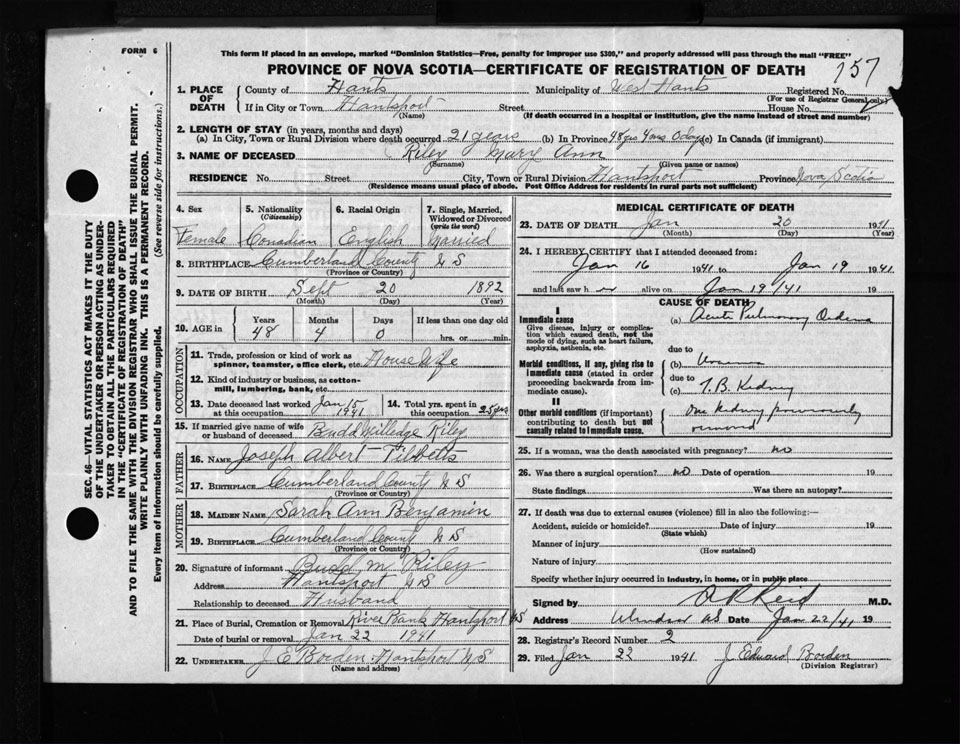 FORM 6
This form if placed in an envelope, marked "Dominion Statistics—Free, penalty for improper use $300," and properly addressed will pass through the mail "FREE"
PROVINCE OF NOVA SCOTIA—CERTIFICATE OF REGISTRATION OF DEATH
757
1. PLACE OF DEATH
County of Hants
Municipality of West Hants
Registered No.
(For use of Registrar General only)
If in City or Town Hantsport Street House No.
(Name) (If death occurred in a hospital or institution, give the name instead of street and number)
2. LENGTH OF STAY (in years, months and days)
(a) In City, Town or Rural Division where death occurred 21 years (b) In Province 48 yrs 4 mos 0 days (c) In Canada (if immigrant)
3. NAME OF DECEASED Riley Mary Ann
(Surname) (Given name or names)
RESIDENCE No. Street City, Town or Rural Division Hantsport Province Nova Scotia
(Residence means usual place of abode. Post Office Address for residents in rural parts not sufficient)
SEC. 46—VITAL STATISTICS ACT MAKES IT THE DUTY
OF THE UNDERTAKER OR PERSON ACTING AS UNDER-
TAKER TO OBTAIN ALL THE PARTICULARS REQUIRED
IN THE "CERTIFICATE OF REGISTRATION OF DEATH"
TO FILE THE SAME WITH THE DIVISION REGISTRAR WHO SHALL ISSUE THE BURIAL PERMIT.
WRITE PLAINLY WITH UNFADING INK. THIS IS A PERMANENT RECORD.
Every item of information should be carefully supplied. (See reverse side for instructions.)
4. Sex
Female
5. Nationality
(Citizenship)
Canadian
6. Racial Origin
English
7. Single, Married, Widowed or Divorced
(write the word)
Married
8. BIRTHPLACE Cumberland County N S
(Province or Country)
9. DATE OF BIRTH Sept 20 1892
(Month) (Day) (Year)
10. AGE in
Years Months Days If less than one day old
48 4 0 hrs. or min.
OCCUPATION
11. Trade, profession or kind of work as
spinner, teamster, office clerk, etc. House Wife
12. Kind of industry or business, as cotton-
mill, lumbering, bank, etc.
13. Date deceased last worked at this occupation Jan 15 1941
14. Total yrs. spent in this occupation 25 yrs
15. If married give name of wife or husband of deceased Budd Milledge Riley
FATHER
16. NAME Joseph Albert Tibbetts
17. BIRTHPLACE Cumberland County N S
(Province or Country)
MOTHER
18. MAIDEN NAME Sarah Ann Benjamin
19. BIRTHPLACE Cumberland County N S
(Province or Country)
20. Signature of informant Budd M Riley
Address Hantsport N S
Relationship to deceased Husband
21. Place of Burial, Cremation or Removal River Bank Hantsport N S
Date of burial or removal Jan 22 1941
22. UNDERTAKER J E Borden Hantsport N S
(Name and address)
MEDICAL CERTIFICATE OF DEATH
23. DATE OF DEATH Jan 20 1941
(Month) (Day) (Year)
24. I HEREBY CERTIFY that I attended deceased from:
Jan 16 1941 to Jan 19 1941
and last saw h er alive on Jan 19/41 19
CAUSE OF DEATH
I
Immediate cause
Give disease, injury or complica-
tion which caused death, not the
mode of dying, such as heart failure,
asphyxia, asthenia, etc.
(a) Acute Pulmonary Oedema
due to
Morbid conditions, if any, giving rise to
immediate cause (stated in order
proceeding backwards from im-
mediate cause).
(b) Uraemia
due to
(c) T.B. Kidney
II
Other morbid conditions (if important)
contributing to death but not
causally related to immediate cause.
One kidney previously
removed
25. If a woman, was the death associated with pregnancy? no
26. Was there a surgical operation? no Date of operation 19
State findings Was there an autopsy?
27. If death was due to external causes (violence) fill in also the following:—
Accident, suicide or homicide? Date of injury 19
(State which)
Manner of injury
(How sustained)
Nature of injury
Specify whether injury occurred in industry, in home, or in public place
Signed by A R Reid M.D.
Address Windsor NS Date Jan 22/41 19
28. Registrar's Record Number 2
29. Filed Jan 22 1941 J Edward Borden
(Division Registrar)